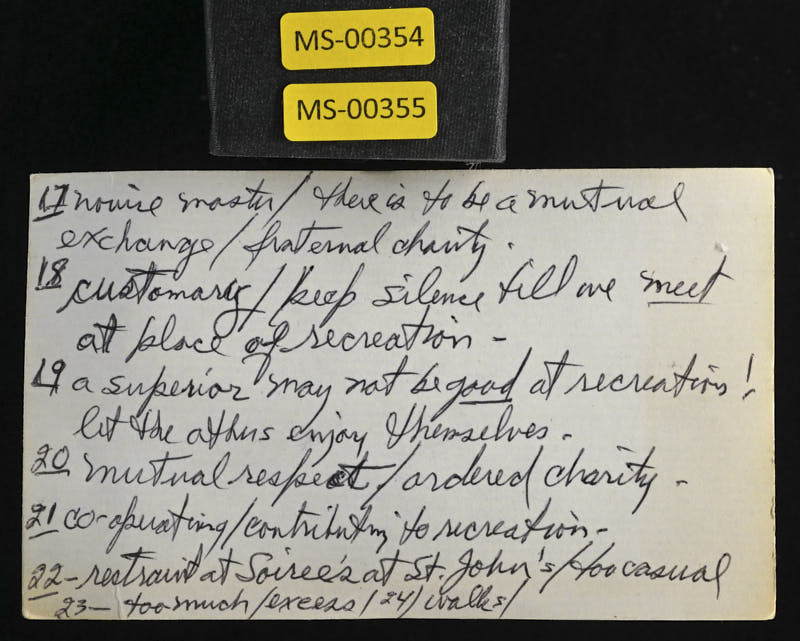 MS-00354
MS-00355
17 novice master / there is to be a mutual
exchange / fraternal charity.
18 customary / keep silence till we meet
at place of recreation -
19 a superior may not be good at recreation!
let the others enjoy themselves.
20 mutual respect / ordered charity -
21 co-operating / contributing to recreation -
22- restraint at Soiree's at St. John's / too casual
23- too much / excess / 24) walks /